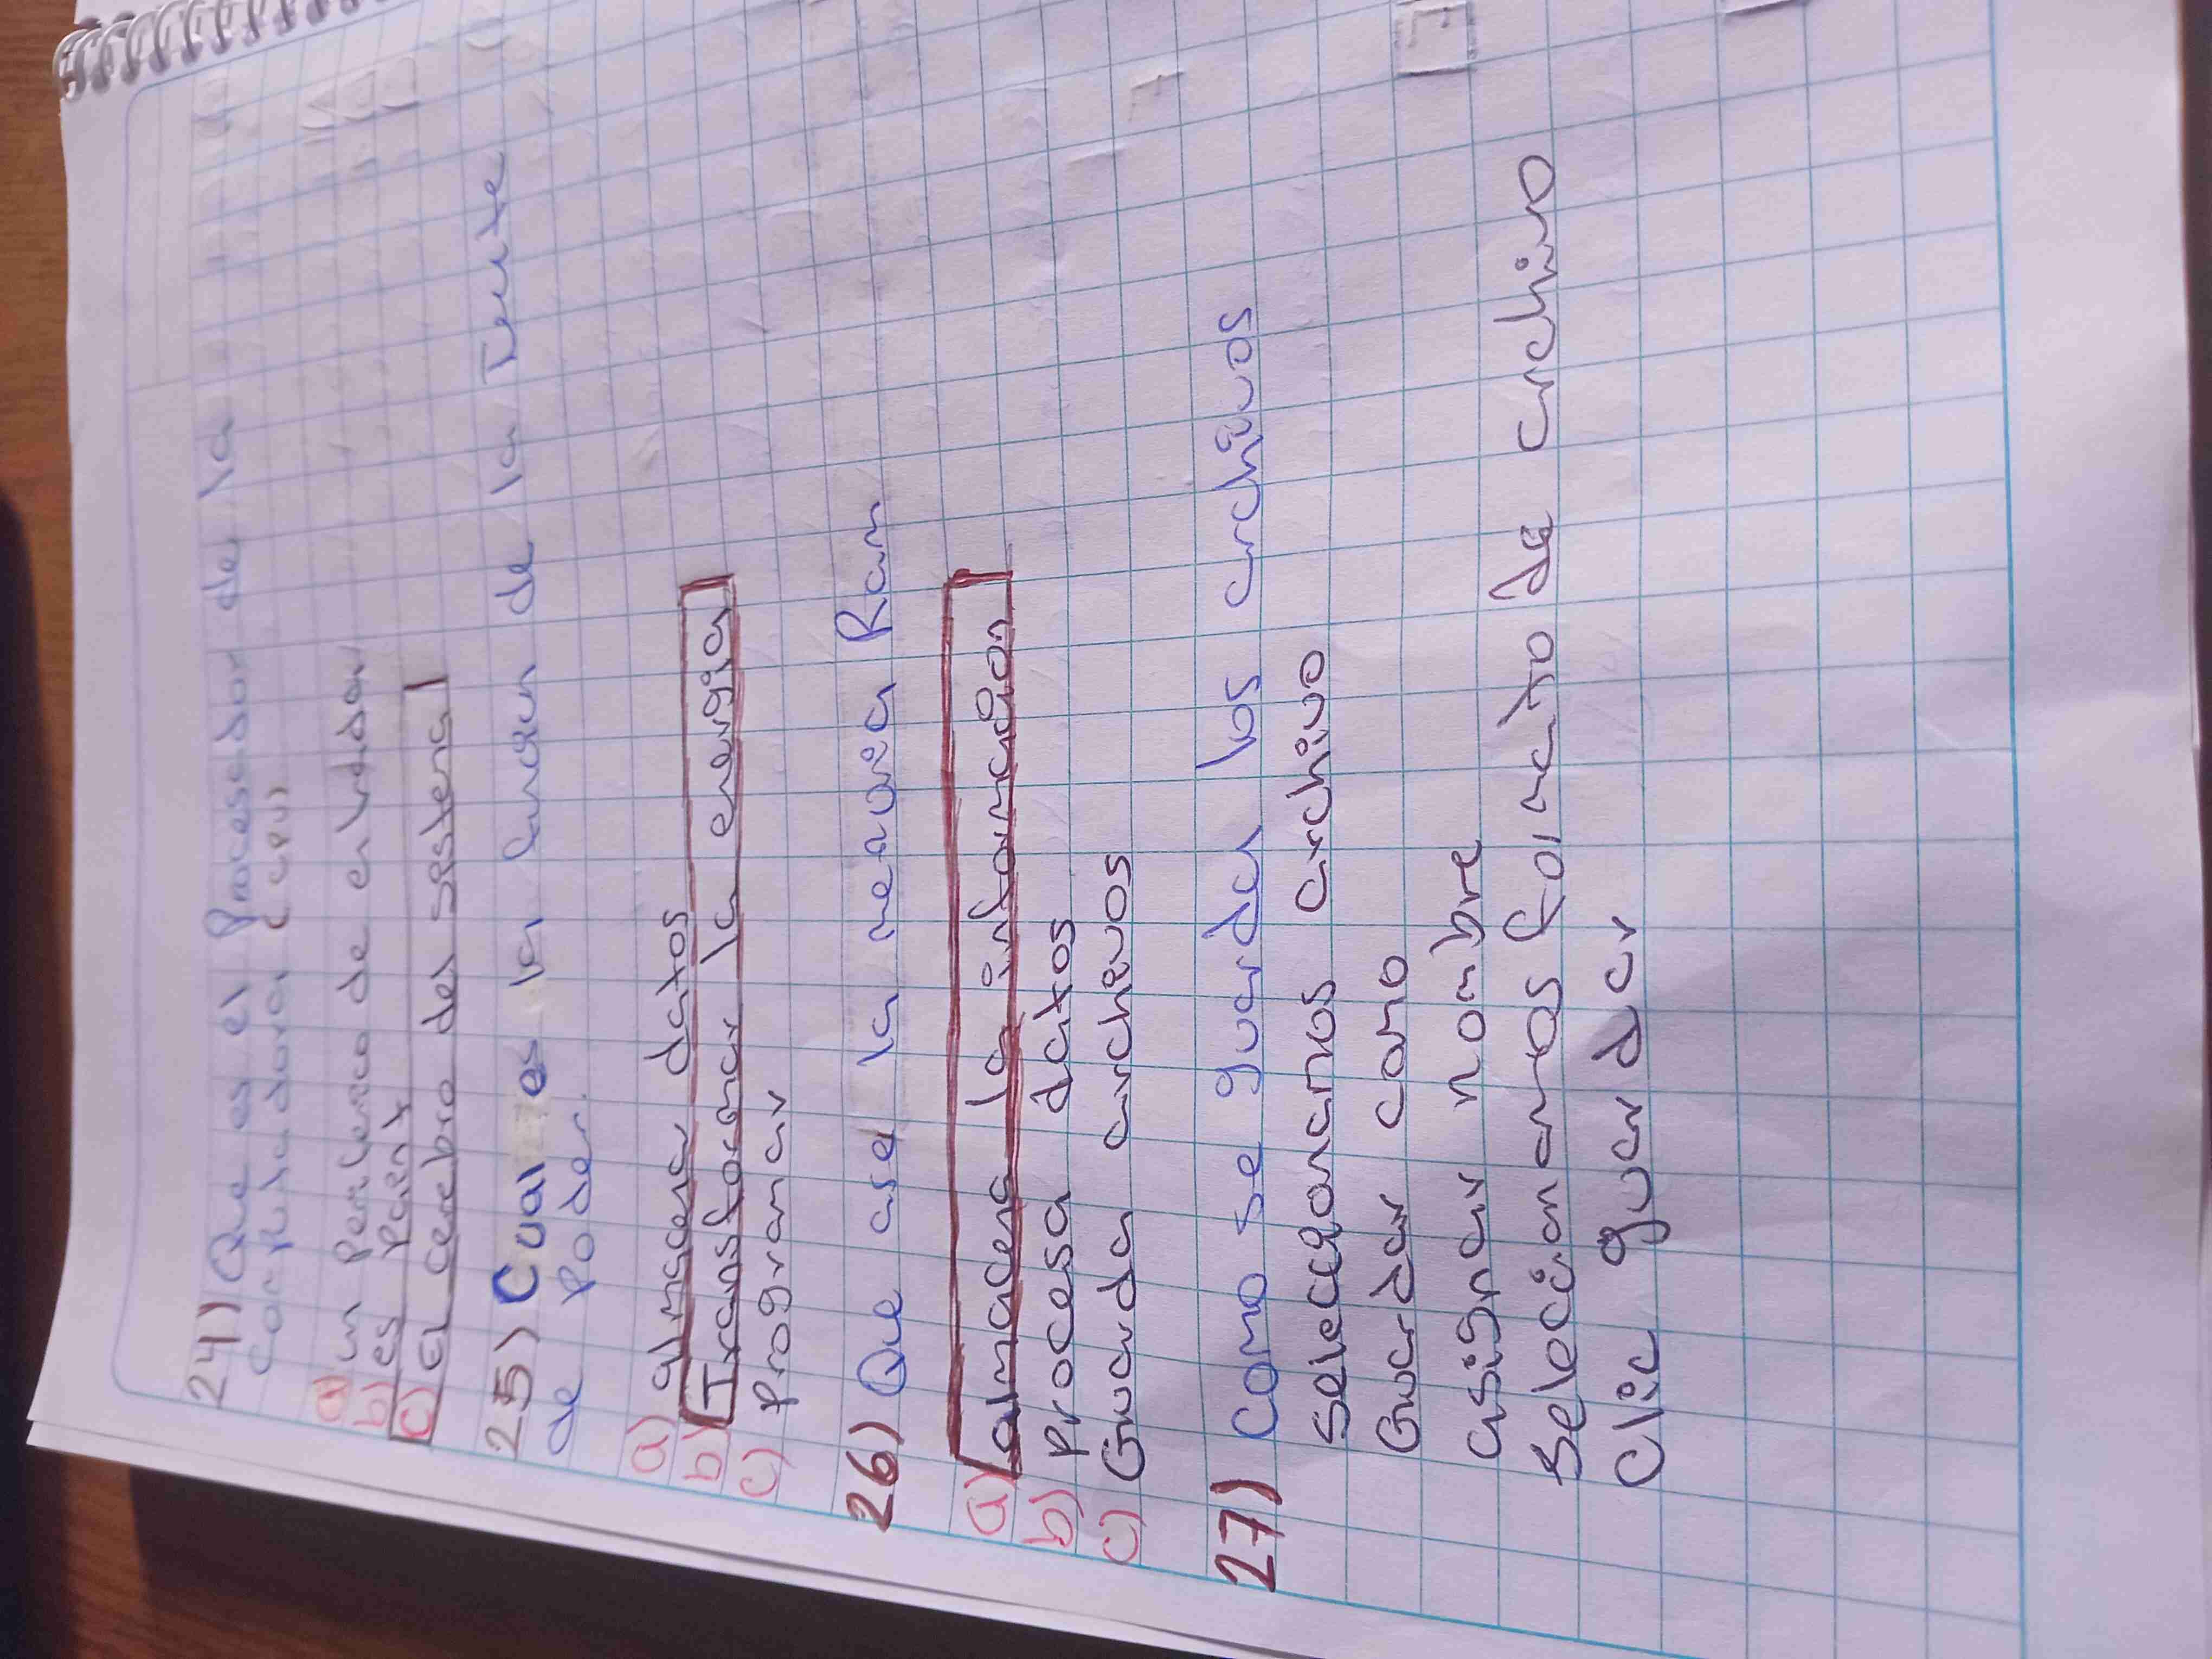 24) Que es el Procesador de la
computadora (CPU)
a) un Periferico de entrada
b) es Paint
c) el cerebro del sistema
25) Cual es la funcion de la Fuente
de Poder.
a) almacena datos
b) Transformar la energia
c) Programar
26) Que ase la memoria Ram
a) almacena la información
b) Procesa datos
c) Guarda archivos
27) Como se guarda los archivos
Seleccionamos archivo
Guardar como
asignar nombre
Selecionamos formato de archivo
Clic guardar